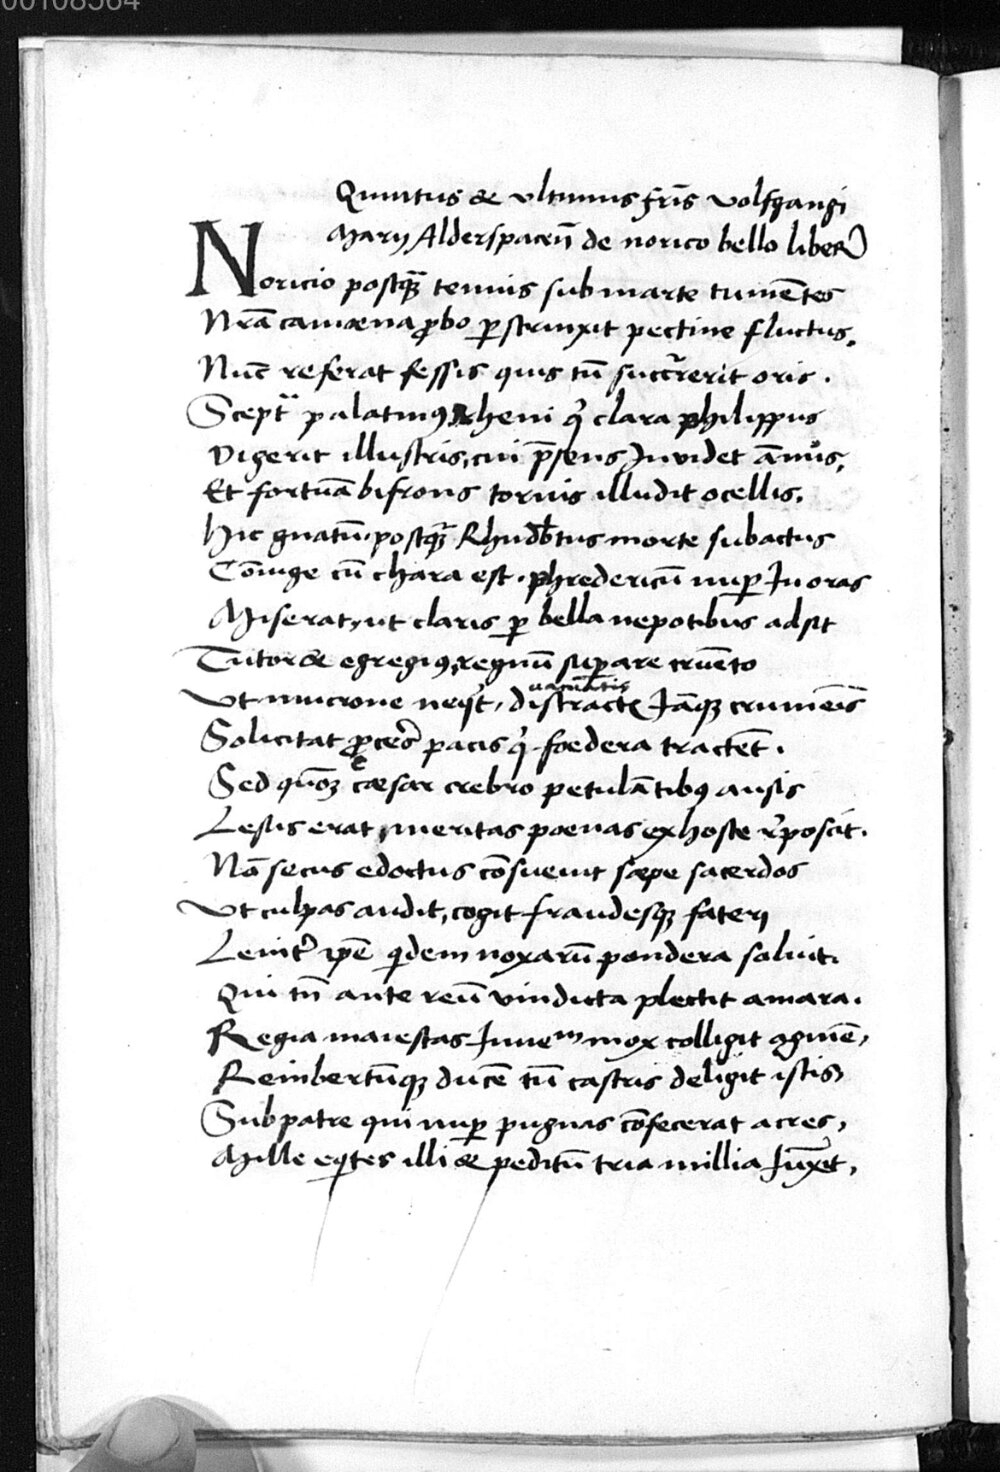 00108564
Quintus & vltimus fr̄is volfgangi
Marij Alderspaceñ de norico bello liber
Noricio postq̃ tenuis sub marte tumētes
Nrā camœna ꝓbo ꝑstrinxit pectine fluctus.
Nūc referat fessis quis tū succr̃rerit oris.
Scept̃ palatinꝰ Rheni q̇ clara philippus
Digerit illustris, cui p̄sens Inuidet ānus,
Et fortūa bifrons toruis illudit ocellis.
Hic gnatū postq̃ Rhudb̄tus morte subactus
Cōiuge cū chara est. phredericū nuꝑ In oras
Miserat, ut claris ꝑ bella nepotibus adsit
Tutor & egregiꝰ, regnū suꝑare cruēto
uacuatis
Vt mucrone neq̇t, distractis Iāqꝫ crumēis
Solicitat ꝓceres pacis q̇ foedera tractēt.
Sed qm̄ cæsar crebro petulātibꝰ ausis
Lesus erat, meritas poenas ex hoste r̃poscit.
Nō secus edoctus cōsueuit sæpe sacerdos
Vt culpas audit, cogit fraudesqꝫ faterj
Lenit̃ ip̄e q̇dem noxarū pondera soluit.
Qui tn̄ ante reū vindicta plectit amara.
Regia maiestas Iuuem mox colligit agmē,
Reinbertūqꝫ ducē tū castris deligit istis
Sub patre qui nuꝑ pugnas cōfecerat acres,
Mille eq̇tes illi & peditū tria millia Iūxit,